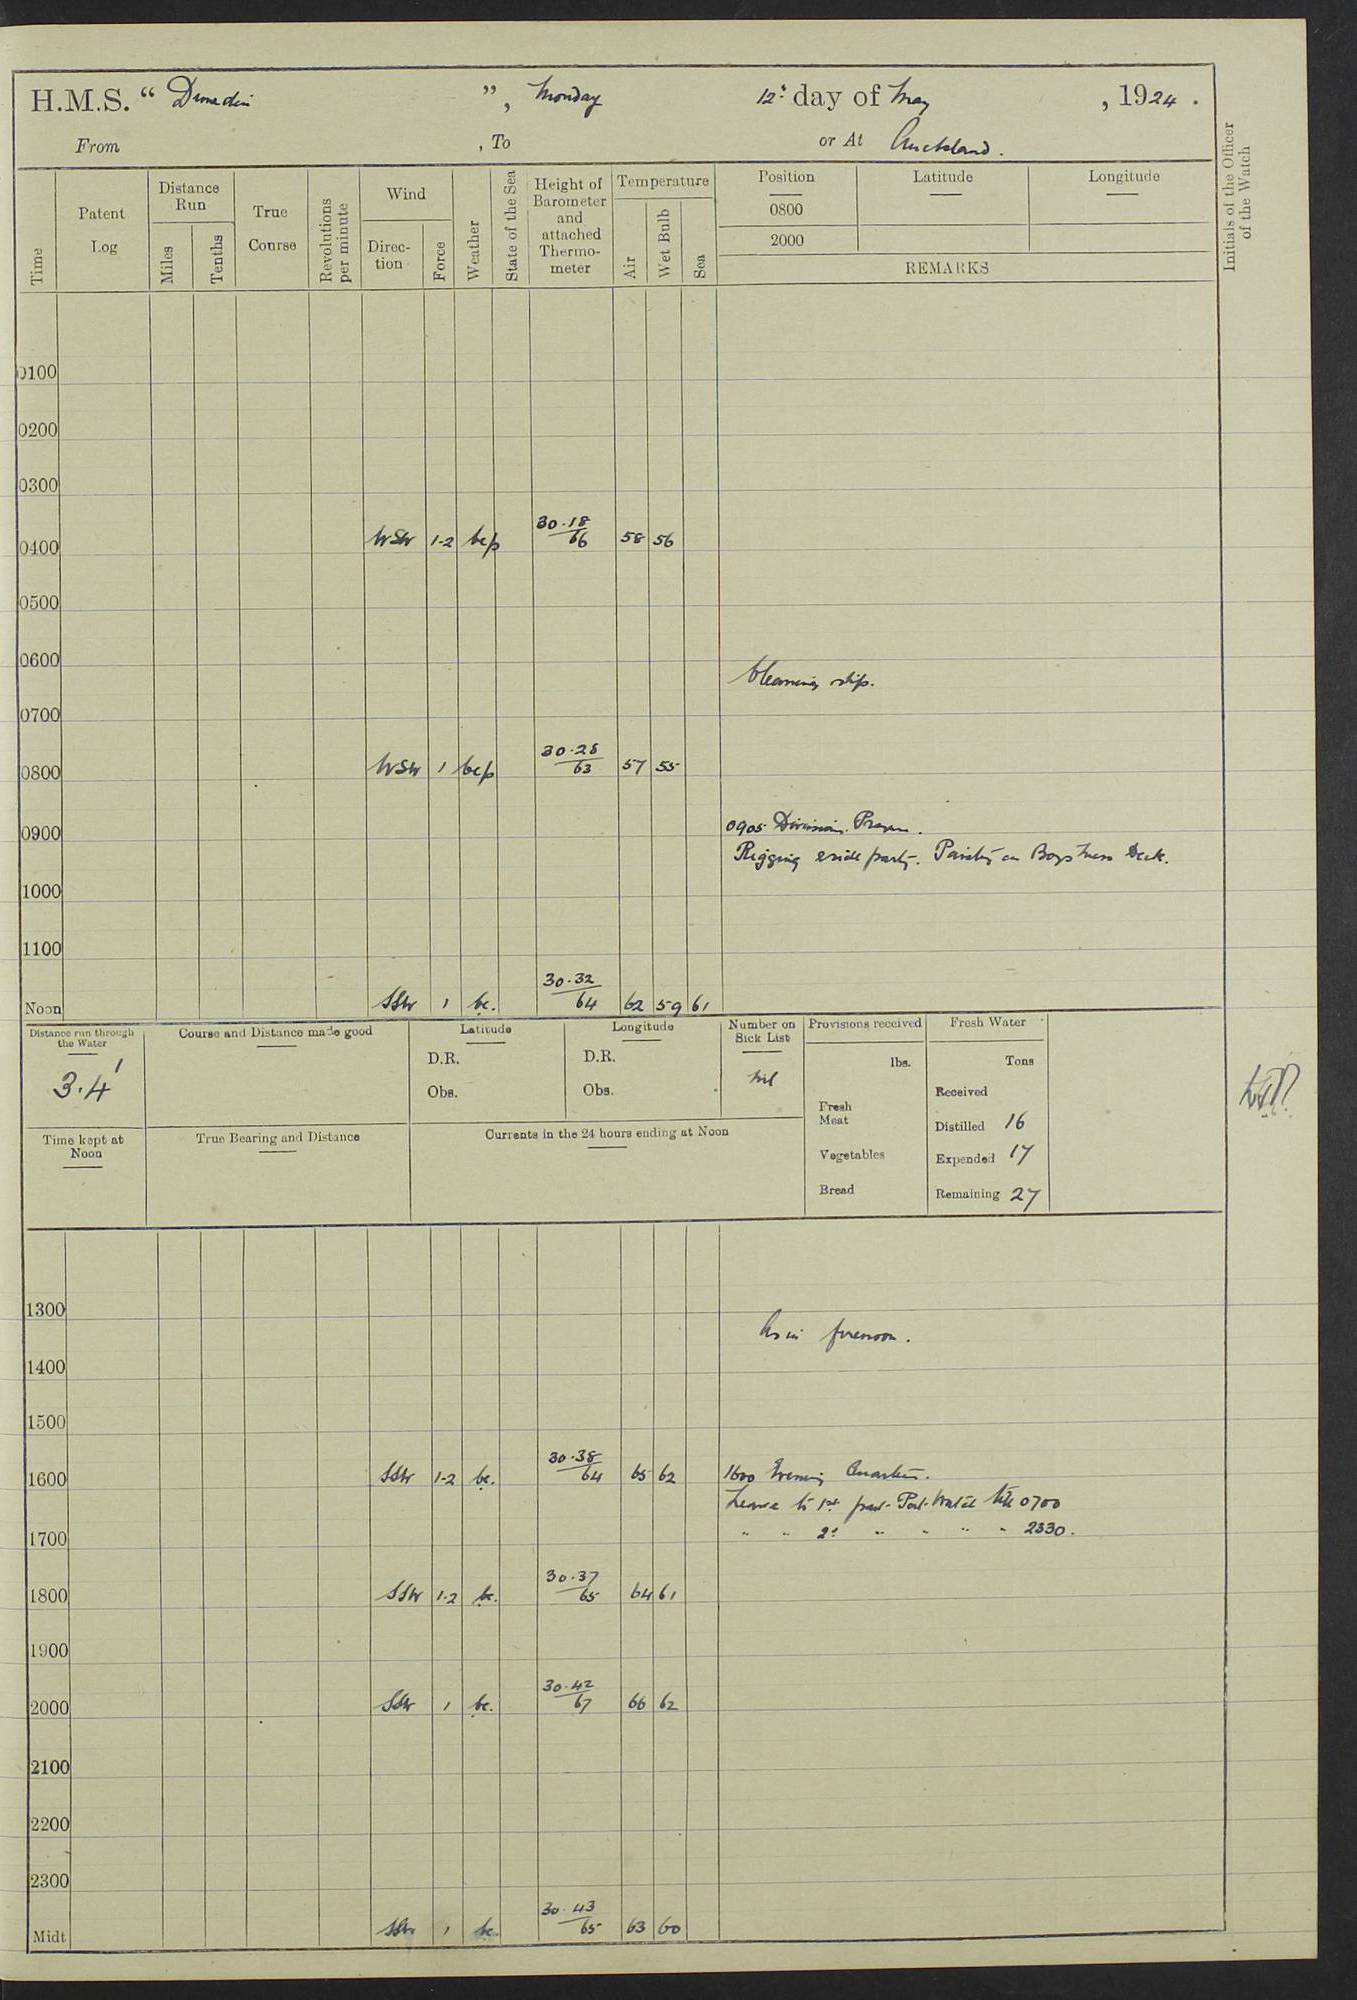 H.M.S. “ Dunedin ”, Monday 12th day of May , 1924 .
From , To or At Auckland.
Time
Patent Log
Distance Run
Miles
Tenths
True Course
Revolutions per minute
Wind
Direc-tion
Force
Weather
State of the Sea
Height of Barometer and attached Thermo-meter
Temperature
Air
Wet Bulb
Sea
Position
Latitude
Longitude
0800
2000
REMARKS
Initials of the Officer of the Watch
0100
0200
0300
0400 WSW 1-2 bcp 30.18/66 58 56
0500
0600
Cleaning ship.
0700
0800 WSW 1 bcp 30.28/63 57 55
0900 0905 Divisions. Prayers.
Rigging side party. Painting on Boys Mess Deck.
1000
1100
Noon SSW 1 bc. 30.32/64 62 59 61
Distance run through the Water
3.4'
Course and Distance made good
Latitude
D.R.
Obs.
Longitude
D.R.
Obs.
Number on Sick List
Nil
Provisions received
lbs.
Fresh Meat
Vegetables
Bread
Fresh Water
Tons
Received
Distilled 16
Expended 17
Remaining 27
Time kept at Noon
True Bearing and Distance
Currents in the 24 hours ending at Noon
1300
As in forenoon.
1400
1500
1600 SSW 1-2 bc. 30.38/64 65 62 1600 Evening Quarters.
Leave to 1st part Port Watch till 0700
1700 " " 2d " " " " 2330.
1800 SSW 1-2 bc. 30.37/65 64 61
1900
2000 SSW 1 bc. 30.42/67 66 62
2100
2200
2300
Midt SSW 1 bc. 30.43/65 63 60